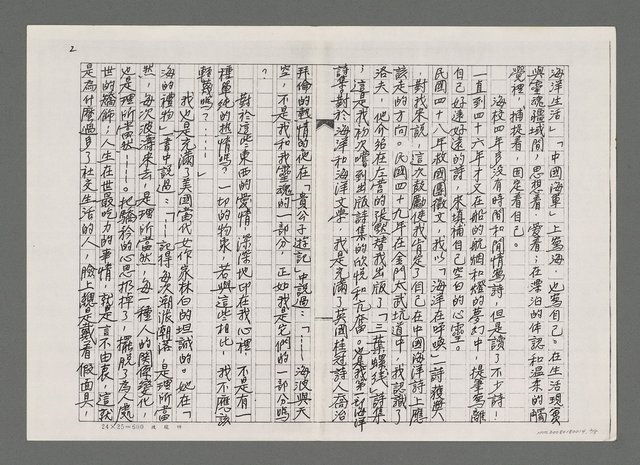 2
海洋生活」、「中國海軍」上寫海，也寫自己。在生活現實
與靈魂疆域間，思想着、愛着；在漂泊的体認和溫柔的觸
覺裡，捕捉着、固定着自己。
海校四年多沒有時間和閒情寫詩，但是讀了不少詩！
一直到四十六年才又在船的航洄和燈的夢幻中，提筆寫離
自己好遠好遠的詩，來填補自己空白的心靈。
民國四十八年救國團徵文，我以「海洋在呼喚」詩獲獎
，對我來說，這次鼓勵使我肯定了自己在中國海洋詩上應
該走的方向。民國四十九年在金門太武坑道中，我認識了
洛夫，他介紹在左營的張默替我出版了「三葉螺线」詩集
；這是我初次嚐到出版詩集的欣悅和亢奮。也是我第一部海洋
詩集對於海洋和海洋文學，我是充滿了英國桂冠詩人喬治
拜倫的熱情的他在「貴公子遊記」中說過：「……海波與天
空，不是我和我靈魂的一部分，正如我是它們的一部分嗎
？
對於這些東西的愛情，深深地印在我心裡，不是有一
種單純的熱情嗎？一切的物象，若與這些相比，我不應該
輕蔑嗎？……」
我也是充滿了美國當代女作家林白的坦誠的。她在「
海的禮物」書中說過：「……記得每次潮退潮落，是理所當
然，每次波濤來去，是理所當然，每一種人的関係變化，
也是理所當然……。把驕矜的心思扔掉了，擺脫了為人處
世的矯飾；人生在世最吃力的事情，就是言不由衷，這就
是為什麼過多了社交生活的人，臉上總是戴着假面具，
24×25=600